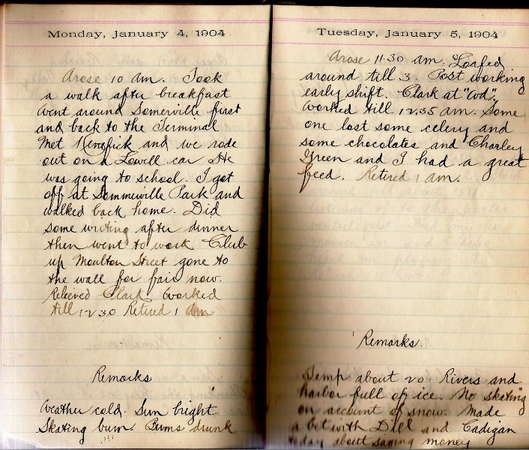 Monday, January 4, 1904
Arose 10 am. Took
a walk after breakfast
Went around Somerville first
and back to the Terminal
Met Kenefick and we rode
out on a Lowell car He
was going to school. I got
off at Sommerville Park and
walked back home. Did
some writing after dinner
then went to work Club
up Moulton Street gone to
the wall for fair now.
Relieved Clark Worked
till 12 30 Retired 1 am
Remarks
Weather cold. Sun bright
Skating bum. Bums drunk
Tuesday, January 5, 1904
Arose 11-30 am. Loafed
around till 3. Post working
early shift. Clark at
Worked till 12.35 am. Some
one lost some celery and
some chocolates and Charley
Green and I had a great
feed. Retired 1 am.
Remarks.
Temp about 20 Rivers and
harbor full of ice. No skating
on account of snow. Made
a bet with Dill and Cadigan
today about saving money